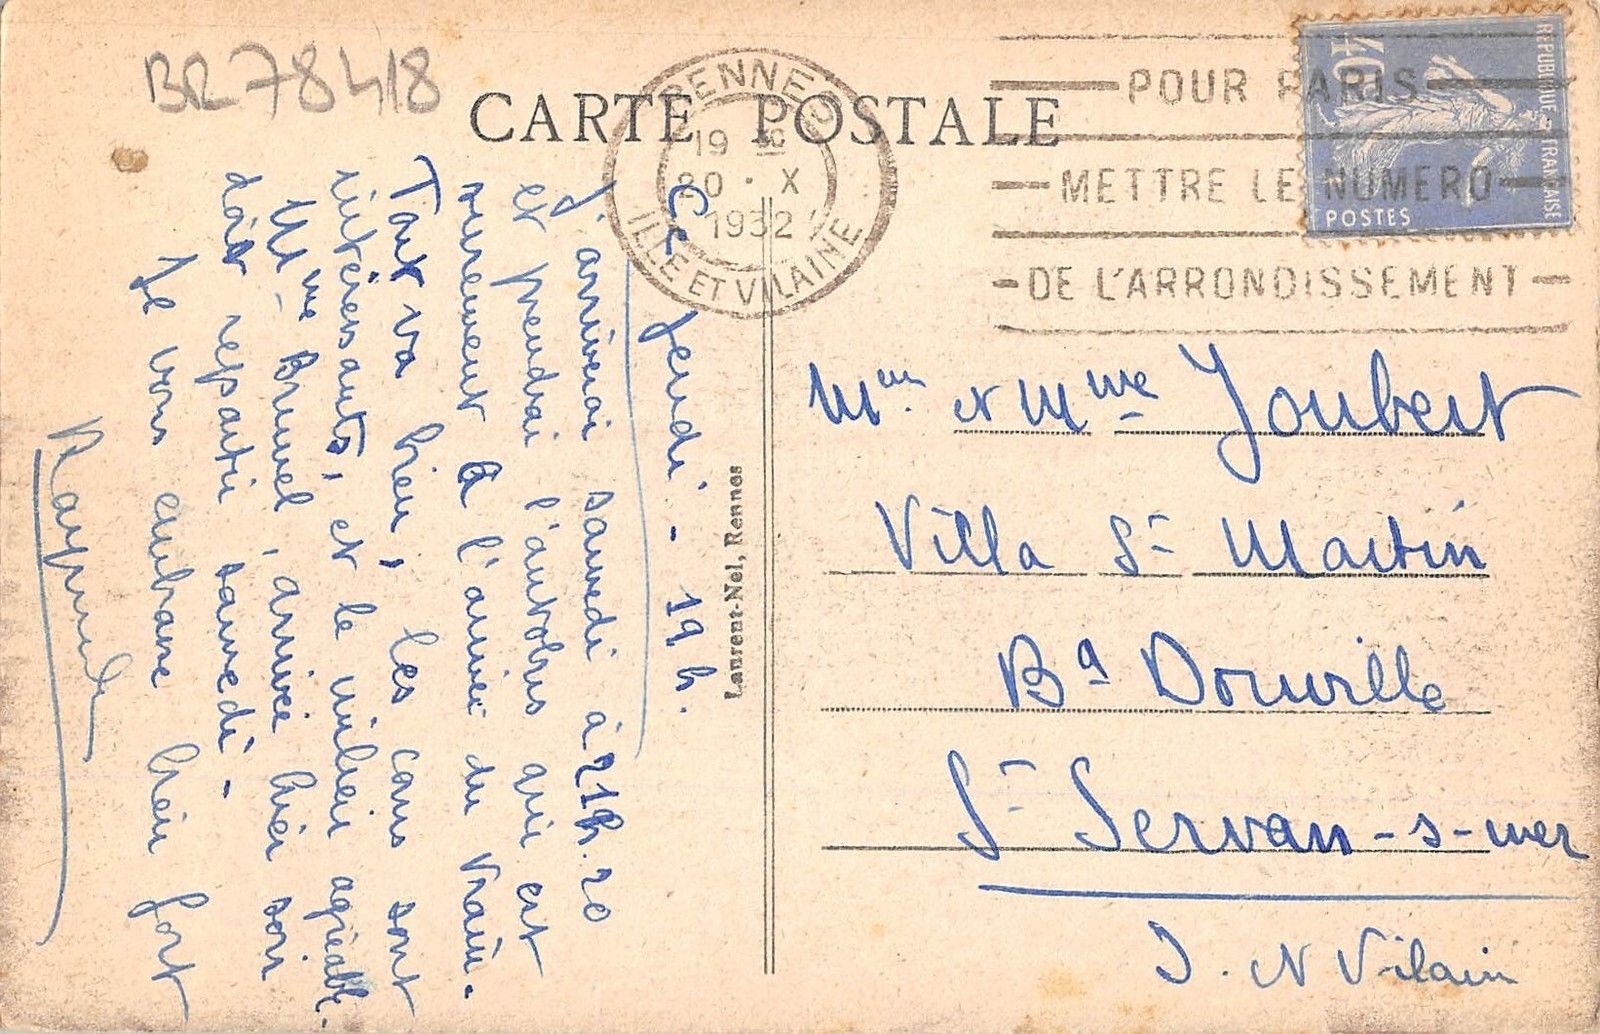 BR78418
CARTE POSTALE
RENNES
19 30
20 · X
1932
ILLE ET VILAINE
POUR PARIS
METTRE LE NUMERO
DE L'ARRONDISSEMENT
40
REPUBLIQUE FRANÇAISE
POSTES
Ce Jeudi - 19 h.
J'arriverai samedi à 21h.20
et prendrai l'autobus qui est
surement à l'arrivée du train.
Tout va bien, les cours sont
intéressants, et le milieu agréable.
Mme Brunel, arrivée hier soir
doit repartir samedi -
Je vous embrasse bien fort
Raymonde
Laurent-Nel, Rennes
Mr. et Mme Joubert
Villa St Martin
Bd Douville
St Servan-s-mer
I. et Vilaine